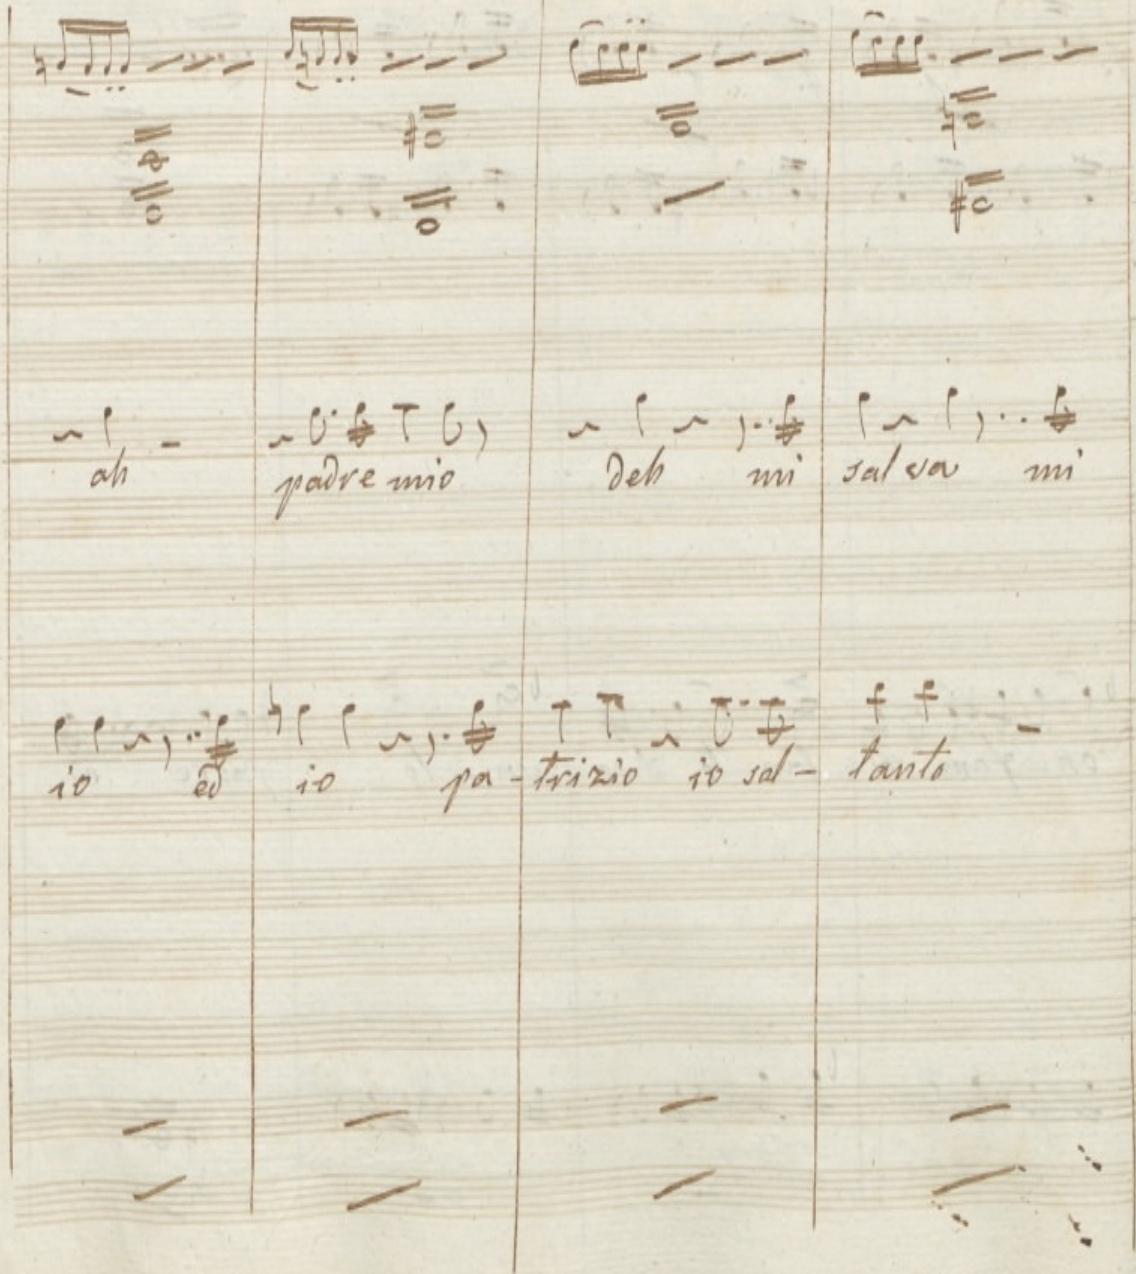 ah padre mio deh mi salva mi
io ed io pa- trizio io sol- tanto